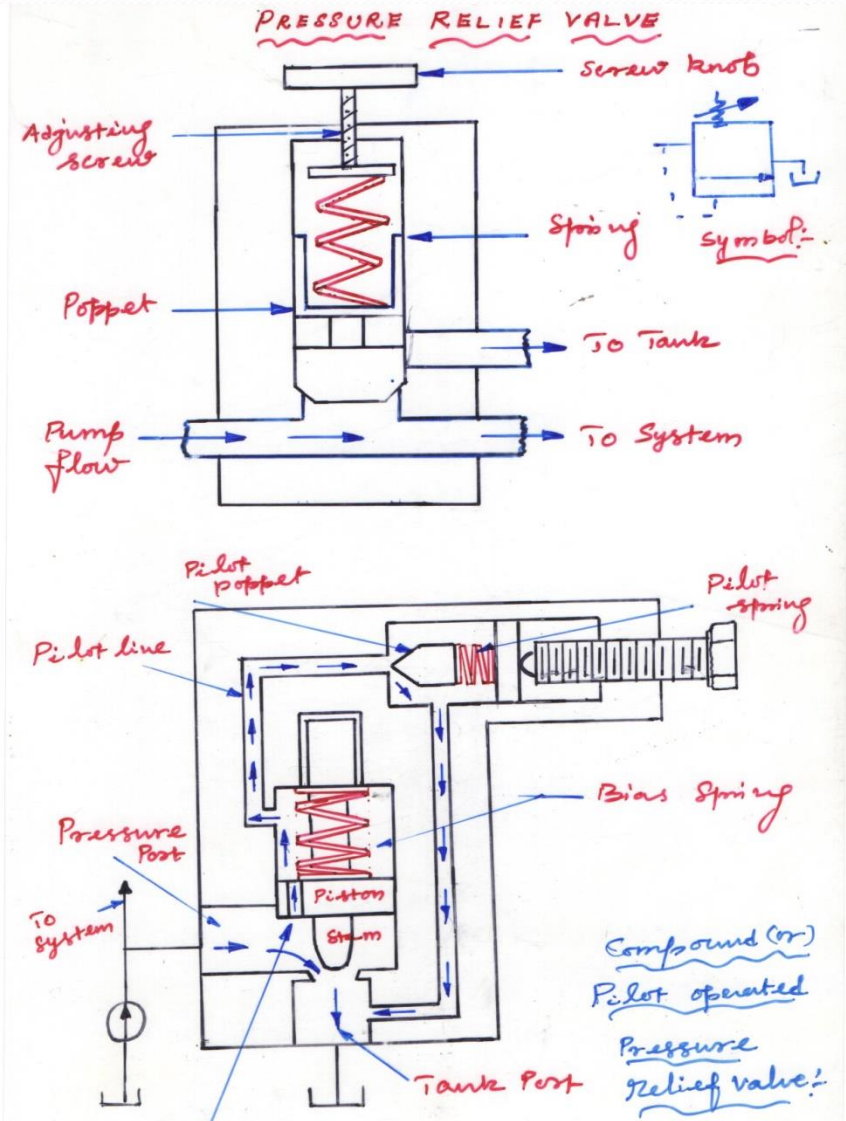 PRESSURE RELIEF VALVE
Screw knob
Adjusting
screw
Spring
Symbol:-
Poppet
To Tank
Pump
flow
To System
Pilot
poppet
Pilot
spring
Pilot line
Bias Spring
Pressure
Port
Piston
Stem
To
System
Compound (or)
Pilot operated
Pressure
Relief valve:-
Tank Port